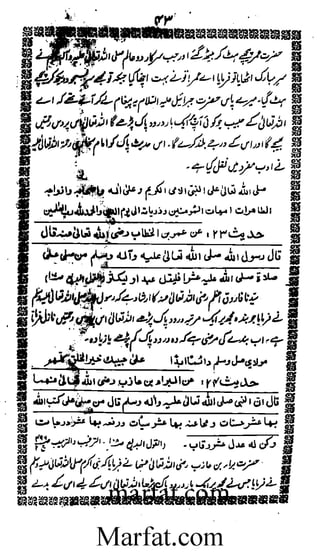 ۴۳
حضرت عمر پیچھے ہٹ کر بیٹھ گئے اور جب سرکار دو عالم صلی اللہ تعالیٰ علیہ وآلہ وسلم نے
سر مبارک اٹھایا تو فرمایا اے عمر تو نے بہت اچھا کیا جبکہ تو مجھے سربسجود دیکھ کر پیچھے
ہٹ گیا۔ میرے پاس حضرت جبرائیل علیہ السلام یہ پیغام لے کر آئے تھے کہ اے
اللہ تعالیٰ کے حبیب جو کوئی آپ پر ایک بار درود پاک پڑھے گا اللہ تعالیٰ اس پر دس رحمتیں
بھیجے گا اور اس کے درجے بلند کرے گا۔ اس حدیث پاک کو امام بخاری رحمۃ اللہ تعالیٰ علیہ
نے ادب مفرد میں نقل کیا ہے۔
صلی اللہ تعالیٰ علی النبی الامی الکریم وعلیٰ آلہ واصحابہ وازواجہ
الطاهرات امهات المؤمنین وذریاتہ الی یوم الدین والحمد للہ رب العلمین
حدیث ۱۲۳: عن عمر بن الخطاب رضی اللہ تعالیٰ عنہ قال
قال رسول اللہ صلی اللہ تعالیٰ علیہ وآلہ وسلم من صلی علی
صلاة صلی اللہ علیہ عشرا فلیقل عبد او لیکثر (القول البدیع
سیدنا فاروق اعظم رضی اللہ تعالیٰ عنہ کا ارشاد ہے کہ رسول اللہ صلی اللہ تعالیٰ علیہ وآلہ وسلم
نے فرمایا جو بندہ مجھ پر ایک مرتبہ درود پاک پڑھے اللہ تعالیٰ اس پر دس رحمتیں نازل فرماتا
ہے۔ اب بندے کی مرضی ہے کہ وہ درود پاک کم پڑھے یا زیادہ۔
مولای صل وسلم دائما ابدا علی حبیبک خیر الخلق کلھم
حدیث ۱۲۴: عن البراء بن عازب رضی اللہ تعالیٰ عنهما
قال ان النبی صلی اللہ تعالیٰ علیہ وآلہ وسلم قال من صلی علی کتب اللہ لہ
بها عشر حسنات ومحا عنہ بها عشر سیات ورفعہ بها عشر درجات
وکن لہ عدل عشر رقاب۔ (القول البدیع، الترغیب والترہیب
حضرت براء بن عازب رضی اللہ تعالیٰ عنہما نے فرمایا کہ نبی اکرم صلی اللہ تعالیٰ علیہ وسلم
نے فرمایا جس نے مجھ پر ایک بار درود پاک پڑھا اللہ تعالیٰ اس کے لیے اس کے بدلے
marfat.com
Marfat.com